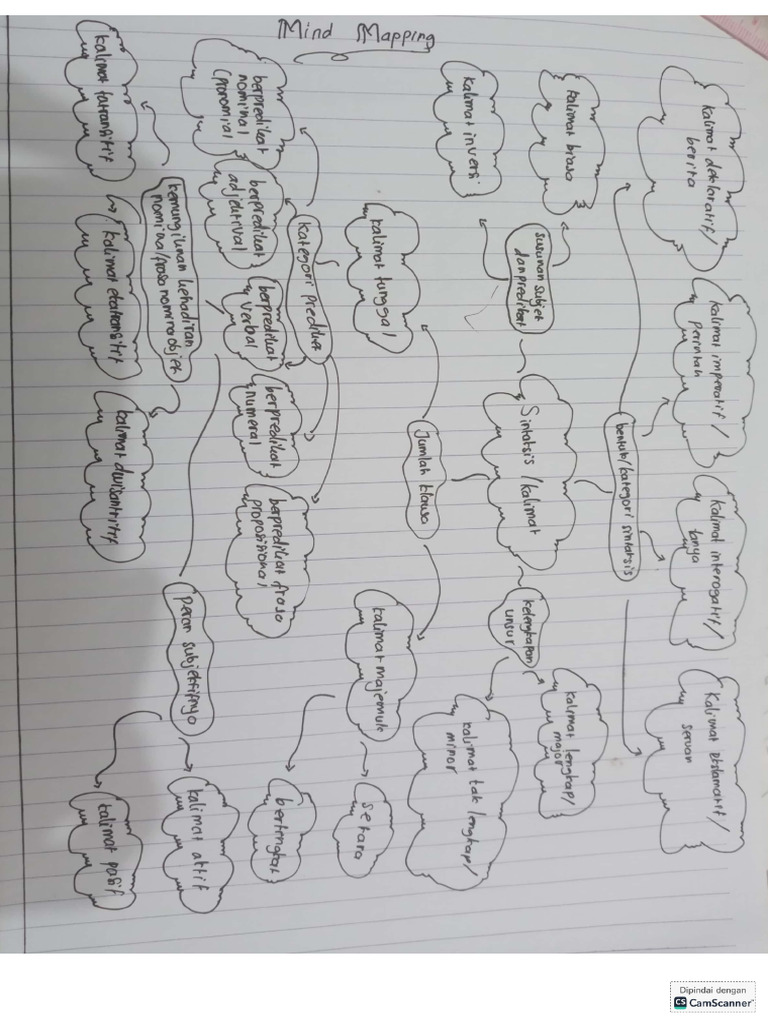 Mind Mapping
kalimat deklaratif/
berita
kalimat imperatif/
perintah
kalimat interogatif/
tanya
kalimat ekslamatif/
seruan
bentuk/kategori sintaksis
kalimat biasa
kalimat inversi
susunan subjek
dan predikat
Sintaksis/kalimat
kelengkapan
unsur
kalimat lengkap/
major
kalimat tak lengkap/
minor
Jumlah klausa
kalimat tunggal
kalimat majemuk
setara
bertingkat
kategori predikat
berpredikat
nominal
(pronomial)
berpredikat
adjektival
berpredikat
verbal
berpredikat
numeral
berpredikat frasa
preposisional
kemungkinan kehadiran
nomina/frasa nomina objek
kalimat tatransitif
kalimat ekatransitif
kalimat dwitransitif
peran subjektifnya
kalimat aktif
kalimat pasif
Dipindai dengan
CS CamScanner